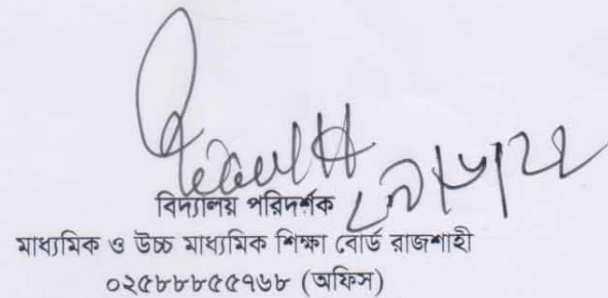 বিদ্যালয় পরিদর্শক
মাধ্যমিক ও উচ্চ মাধ্যমিক শিক্ষা বোর্ড রাজশাহী
০২৫৮৮৮৫৫৭৬৮ (অফিস)